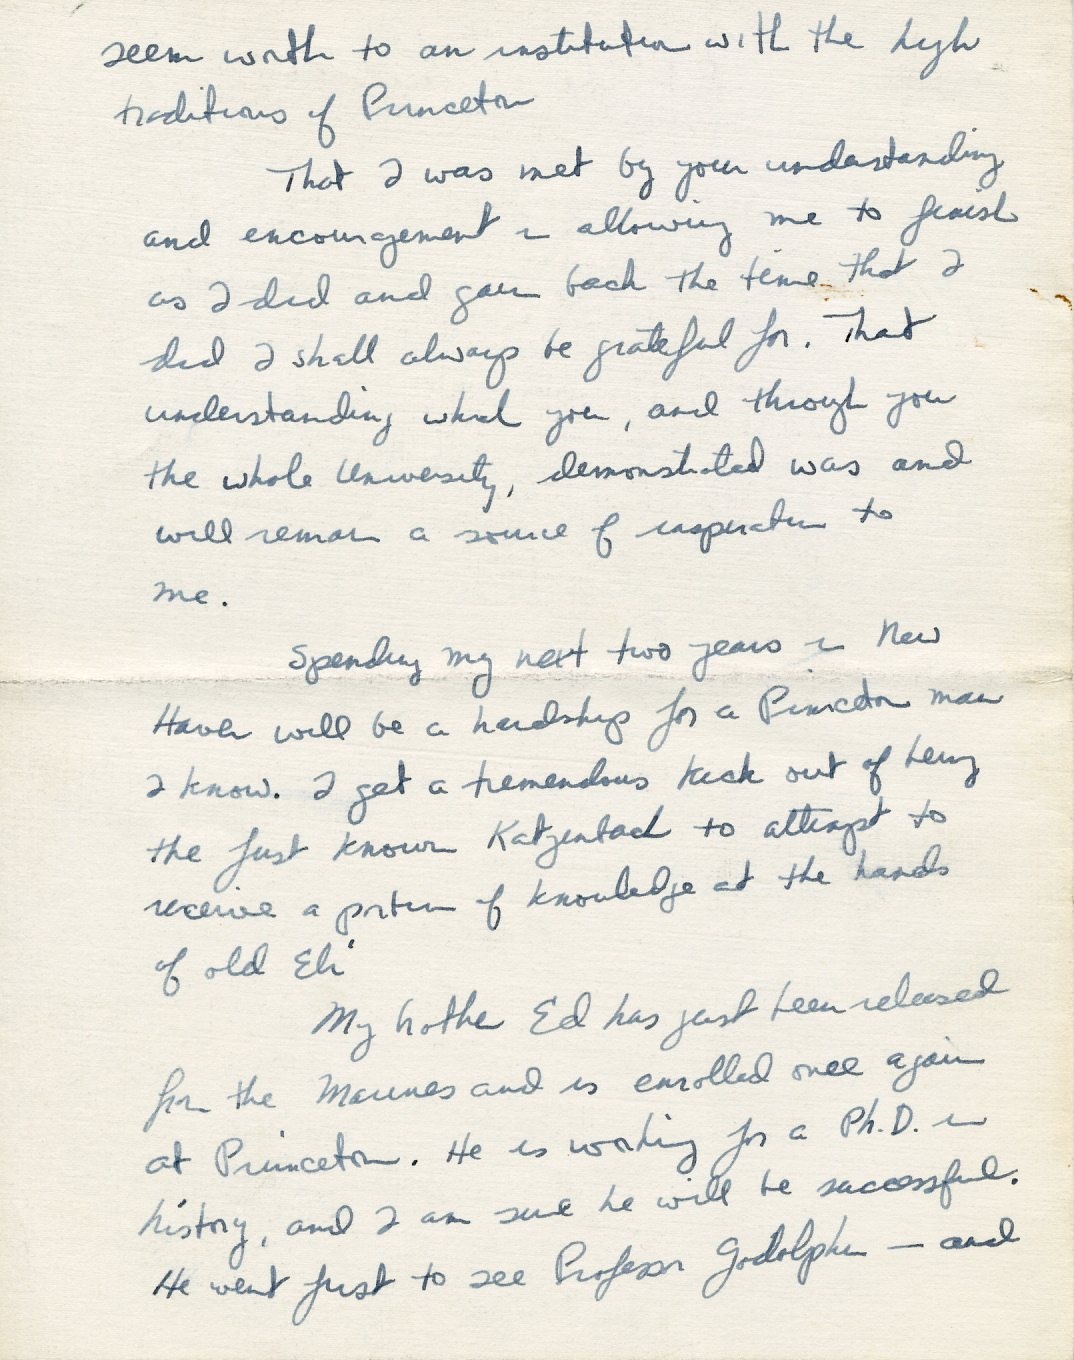 seem worth to an institution with the high
traditions of Princeton
That I was met by your understanding
and encouragement in allowing me to finish
as I did and gain back the time that I
did I shall always be grateful for. That
understanding which you, and through you
the whole University, demonstrated was and
will remain a source of inspiration to
me.
Spending my next two years in New
Haven will be a hardship for a Princeton man
I know. I get a tremendous kick out of being
the first known Katzenbach to attempt to
receive a portion of knowledge at the hands
of old Eli
My brother Ed has just been released
from the Marines and is enrolled once again
at Princeton. He is working for a Ph.D. in
history, and I am sure he will be successful.
He went first to see Professor Godolphin — and